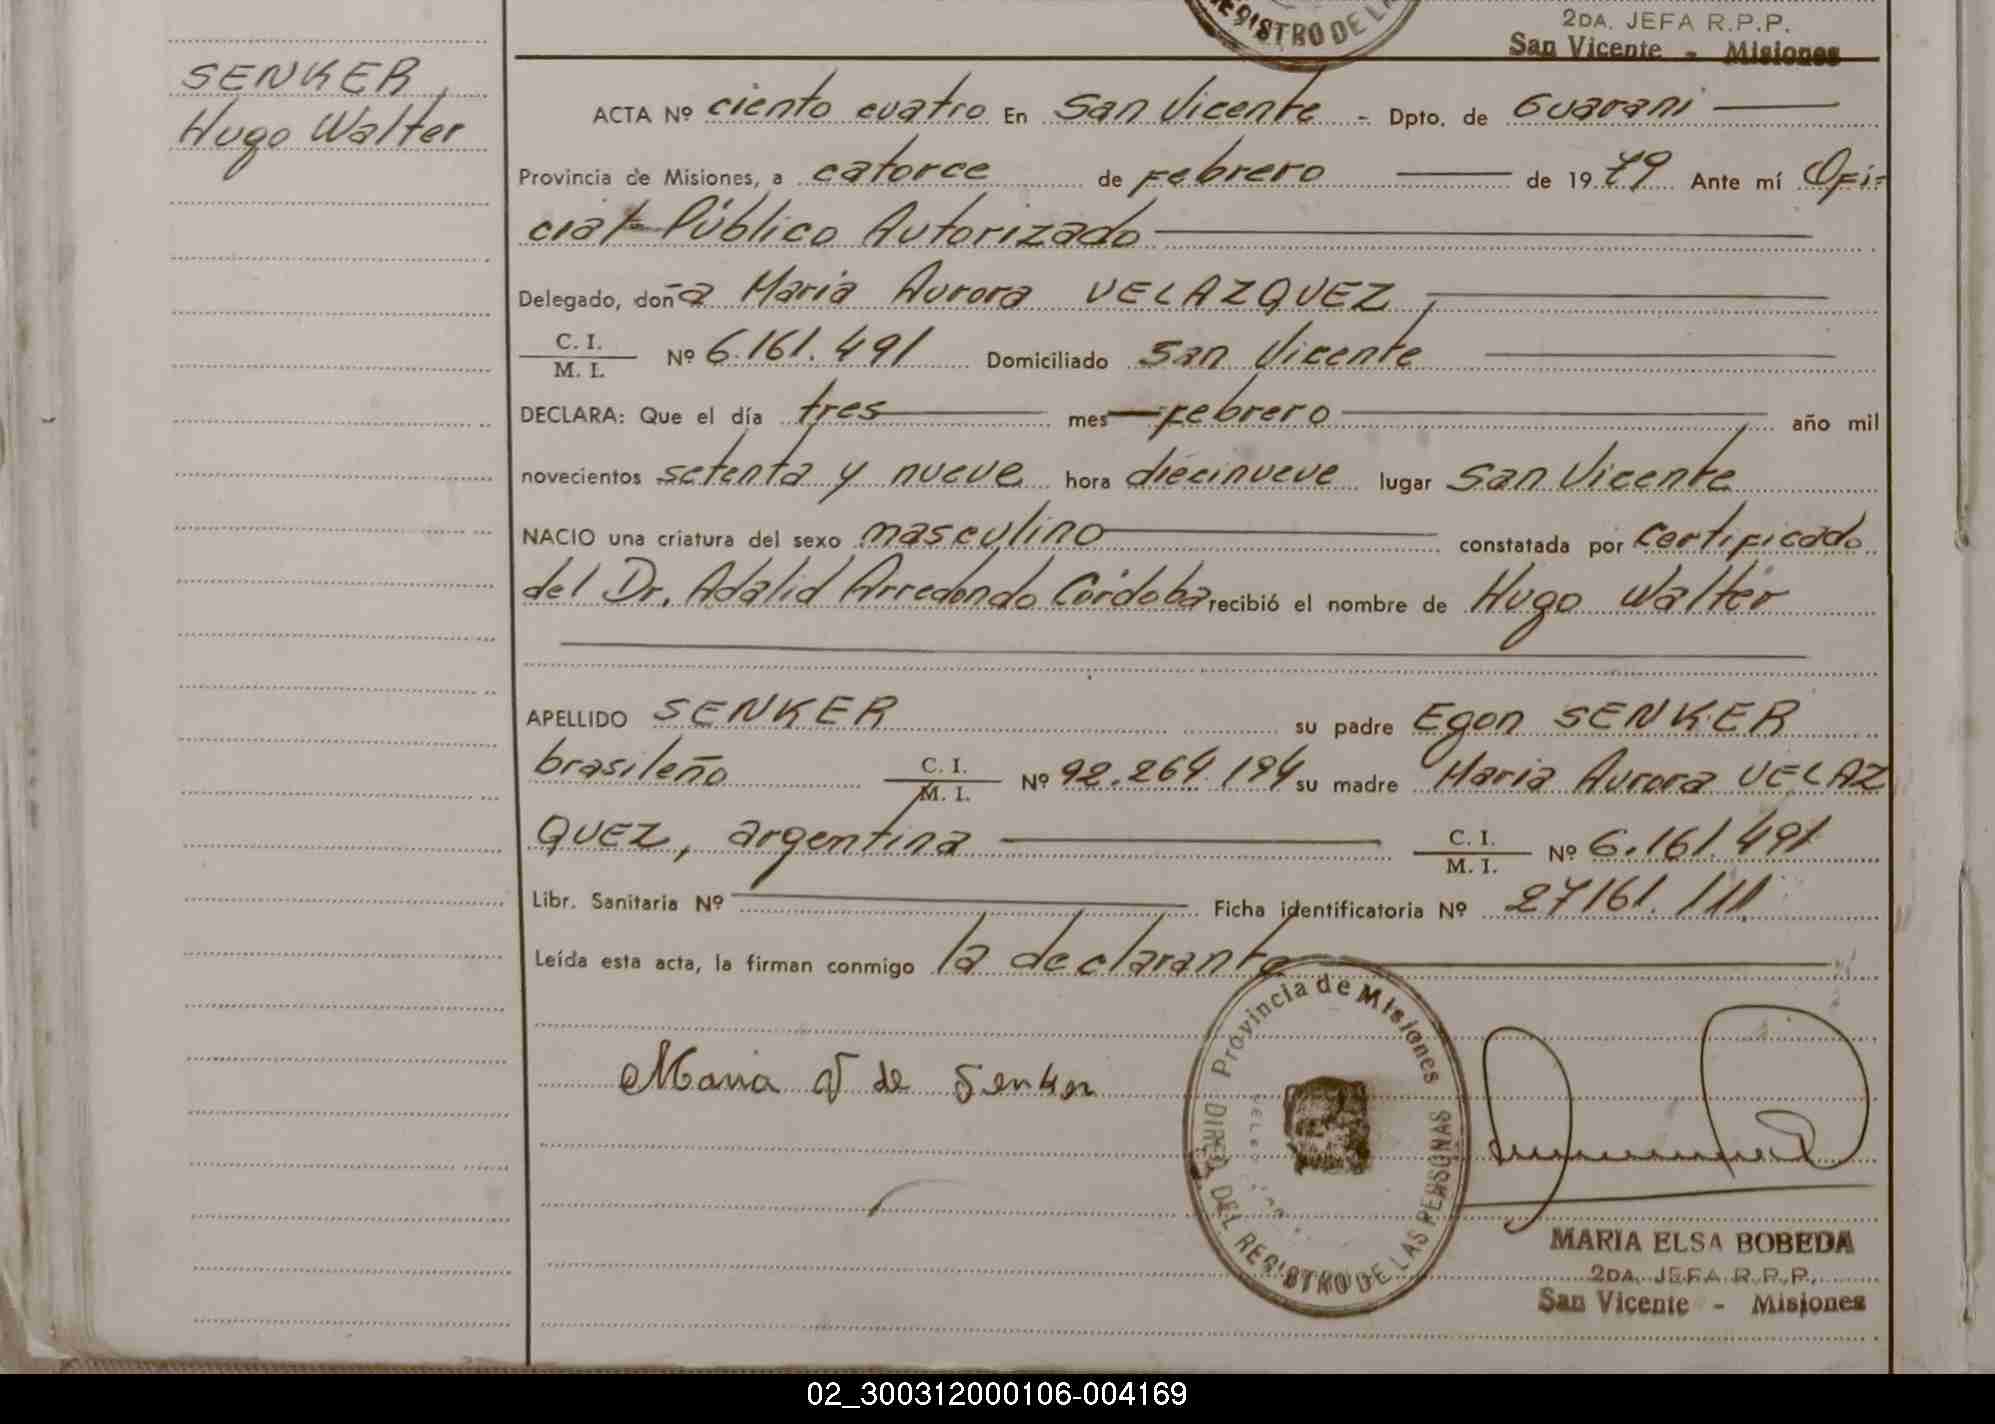 REGISTRO DE LA
2DA. JEFA R.P.P.
San Vicente - Misiones
SENKER
Hugo Walter
ACTA Nº ciento cuatro En San Vicente - Dpto. de Guarani
Provincia de Misiones, a catorce de febrero de 1979 Ante mí Ofi-
cial Público Autorizado
Delegado, doña Maria Aurora VELAZQUEZ,
C. I.
M. I. Nº 6.161.491 Domiciliado San Vicente
DECLARA: Que el día tres mes febrero año mil
novecientos setenta y nueve hora diecinueve lugar San Vicente
NACIO una criatura del sexo masculino constatada por certificado
del Dr. Adalid Arredondo Córdoba recibió el nombre de Hugo Walter
APELLIDO SENKER su padre Egon SENKER
brasileño C. I. M. I. Nº 92.264.194 su madre Maria Aurora VELAZ
QUEZ, argentina C. I. M. I. Nº 6.161.491
Libr. Sanitaria Nº Ficha identificatoria Nº 27161.111
Leída esta acta, la firman conmigo la declarante
Maria V de Senker
Provincia de Misiones
DIREC. DEL REGISTRO DE LAS PERSONAS
MARIA ELSA BOBEDA
2DA. JEFA R.P.P.
San Vicente - Misiones
02_300312000106-004169